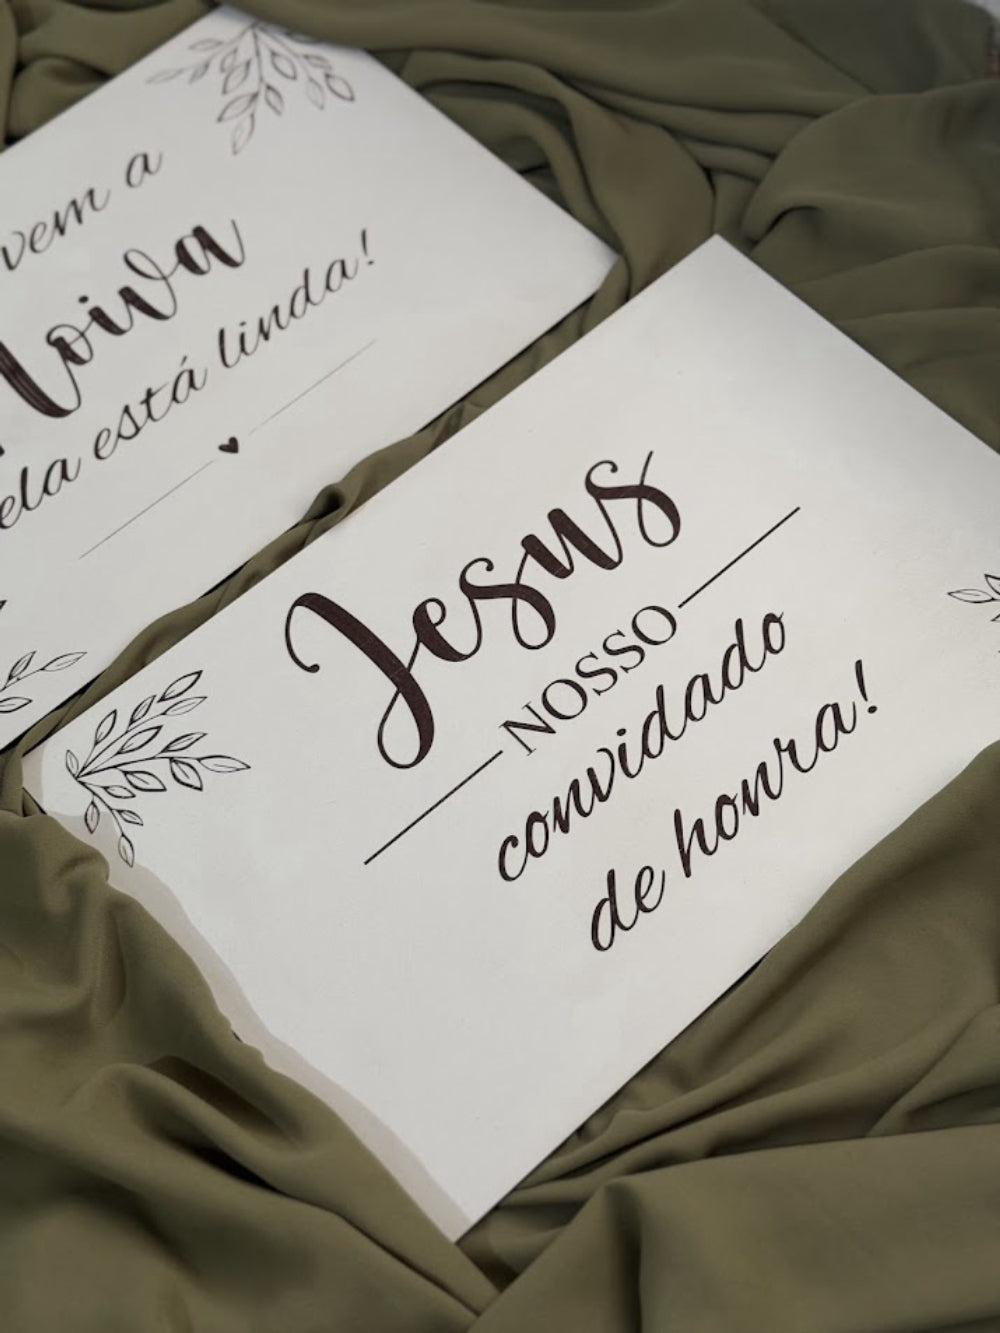 vem a
Noiva
ela está linda!
Jesus
NOSSO
convidado
de honra!